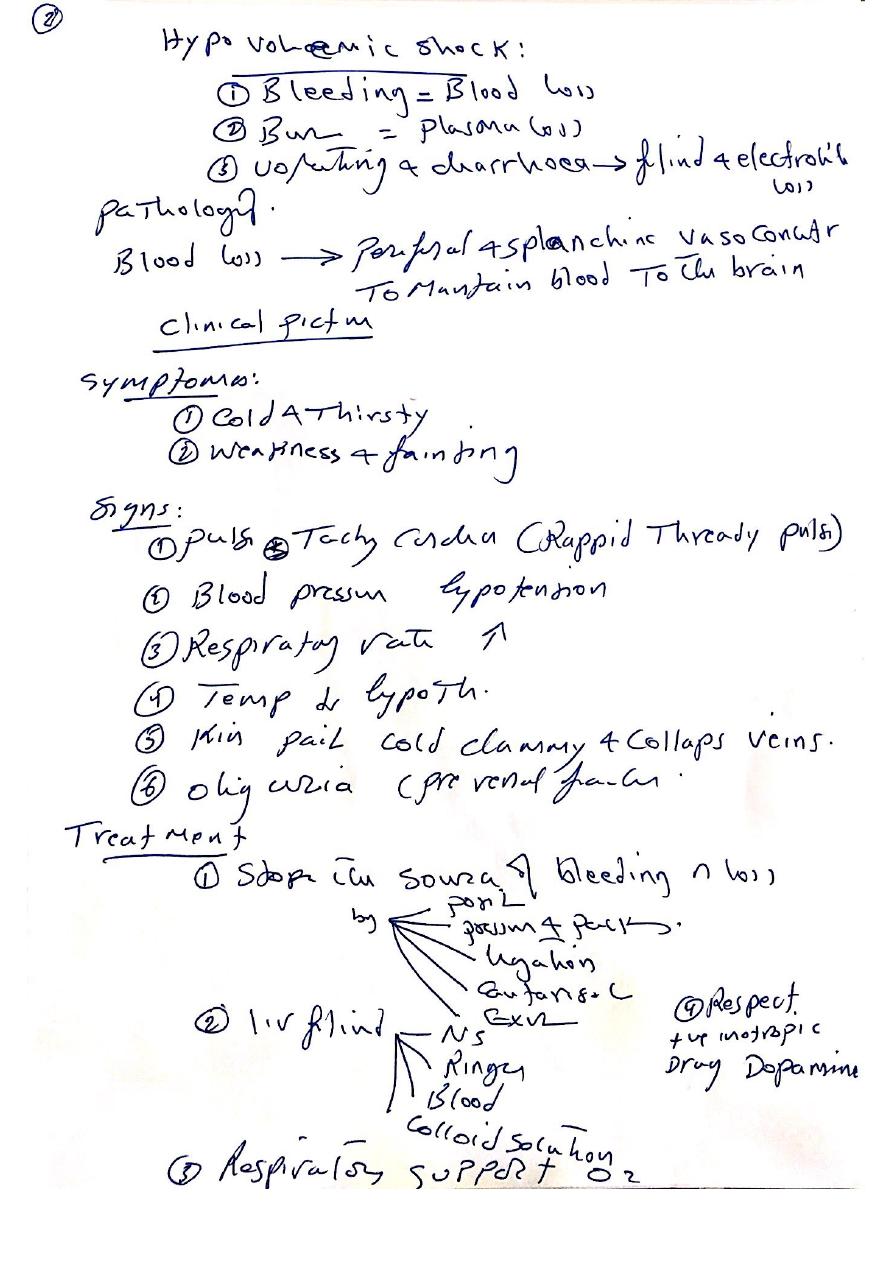 2
Hypovolaemic shock:
① Bleeding = Blood loss
② Burn = plasma loss
③ vomating & diarrhoea → fluid & electrolit loss
pathology.
Blood loss → Periferal & splanchinc vasoconstr
To Maintain blood To the brain
Clinical pictur
Symptomes:
① Cold & Thirsty
② Weakness & fainting
Signs:
① Puls Tachy cardia (Rappid Thready puls)
② Blood pressur hypotension
③ Respiratory rate ↑
④ Temp hypoth.
⑤ Kin pail cold clammy & Collaps veins.
⑥ oliguria (pre renal
Treatment
① Stop the source of bleeding loss
by
pressur & pack
ligation
② I.V fluid
NS
Ringer
Blood
Colloid solution
③ Respiratory support O2
④ Respect.
+ve inotropic
Drug Dopamine